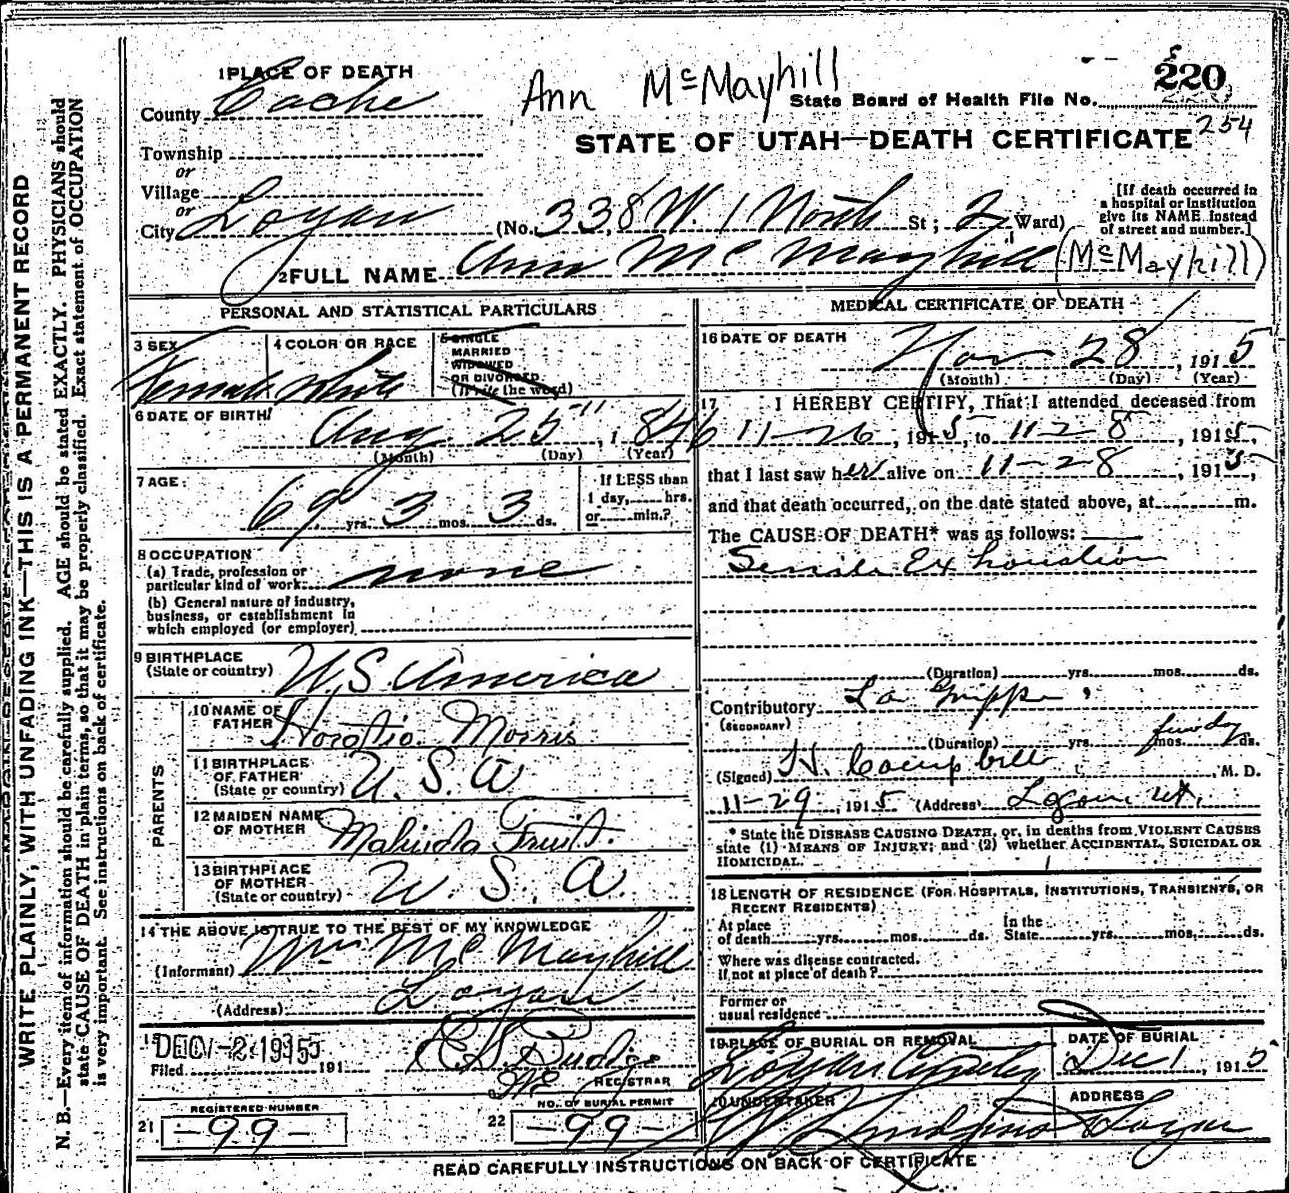 1 PLACE OF DEATH
County Cache
Ann McMayhill
State Board of Health File No. 220
254
STATE OF UTAH—DEATH CERTIFICATE
Township
or
Village
or
City Logan (No. 338 W. 1 North St; 2 Ward)
[If death occurred in
a hospital or institution
give its NAME instead
of street and number.]
2 FULL NAME Ann McMayhill (McMayhill)
PERSONAL AND STATISTICAL PARTICULARS
3 SEX Female
4 COLOR OR RACE White
5 SINGLE
MARRIED
WIDOWED
OR DIVORCED
(Write the word)
6 DATE OF BIRTH Aug. 25th, 1846
(Month) (Day) (Year)
7 AGE: 69 yrs. 3 mos. 3 ds.
If LESS than
1 day, hrs.
or min.?
8 OCCUPATION
(a) Trade, profession or
particular kind of work: none
(b) General nature of industry,
business, or establishment in
which employed (or employer)
9 BIRTHPLACE
(State or country) U.S. America
PARENTS
10 NAME OF
FATHER Horatio Morris
11 BIRTHPLACE
OF FATHER
(State or country) U. S. A
12 MAIDEN NAME
OF MOTHER Malinda Truit.
13 BIRTHPLACE
OF MOTHER
(State or country) U. S. A.
14 THE ABOVE IS TRUE TO THE BEST OF MY KNOWLEDGE
(Informant) Wm McMayhill
(Address) Logan
15 DEC -2 1915
Filed 191
REGISTRAR
REGISTERED NUMBER
21 -99-
NO. OF BURIAL PERMIT
22 -99-
MEDICAL CERTIFICATE OF DEATH
16 DATE OF DEATH Nov 28, 1915
(Month) (Day) (Year)
17 I HEREBY CERTIFY, That I attended deceased from
11-26, 1915, to 11-28, 1915,
that I last saw her alive on 11-28, 1915,
and that death occurred, on the date stated above, at m.
The CAUSE OF DEATH* was as follows:
Senile Exhaustion
(Duration) yrs. mos. ds.
Contributory La Grippe
(SECONDARY)
(Duration) yrs. mos. few dy ds.
(Signed) H. Campbell, M. D.
11-29, 1915 (Address) Logan, Ut.
* State the DISEASE CAUSING DEATH, or, in deaths from VIOLENT CAUSES
state (1) MEANS OF INJURY; and (2) whether ACCIDENTAL, SUICIDAL OR
HOMICIDAL.
18 LENGTH OF RESIDENCE (FOR HOSPITALS, INSTITUTIONS, TRANSIENTS, OR
RECENT RESIDENTS)
At place
of death yrs. mos. ds.
In the
State yrs. mos. ds.
Where was disease contracted.
If not at place of death?
Former or
usual residence
19 PLACE OF BURIAL OR REMOVAL
Logan Cemetery
DATE OF BURIAL
Dec 1, 1915
20 UNDERTAKER
ADDRESS
Logan
READ CAREFULLY INSTRUCTIONS ON BACK OF CERTIFICATE
WRITE PLAINLY, WITH UNFADING INK—THIS IS A PERMANENT RECORD
N. B.—Every item of information should be carefully supplied. AGE should be stated EXACTLY. PHYSICIANS should
state CAUSE OF DEATH in plain terms, so that it may be properly classified. Exact statement of OCCUPATION
is very important. See instructions on back of certificate.